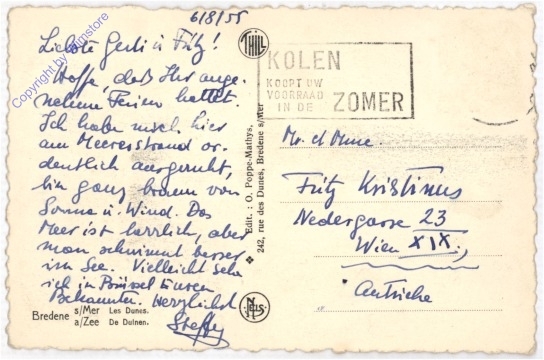 6/8/55
Liebste Gerti u Fritz!
Hoffe, daß Ihr ange-
nehme Ferien hattet.
Ich habe mich hier
am Meeresstrand or-
dentlich ausgeruht,
bin ganz braun von
Sonne u. Wind. Das
Meer ist herrlich, aber
man schwimmt besser
im See. Vielleicht sehe
ich in Brüssel einen
Bekannten. Herzlichst
Steffy
Bredene s/Mer Les Dunes.
a/Zee De Duinen.
THILL
Edit. : O. Poppe-Mathys,
242, rue des Dunes, Bredene s/Mer
NELS
KOLEN
KOOPT UW
VOORRAAD
IN DE ZOMER
Mr. et Mme.
Fritz Kristinus
Nedergasse 23
Wien XIX.,
Autriche
Copyright by filmstore